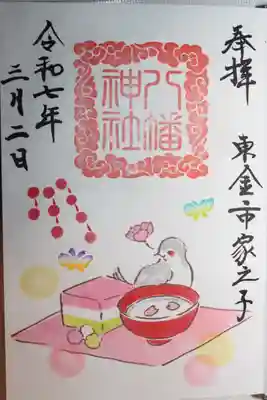 奉拝
東金市家之子
八幡
神社
令和七年
三月二日